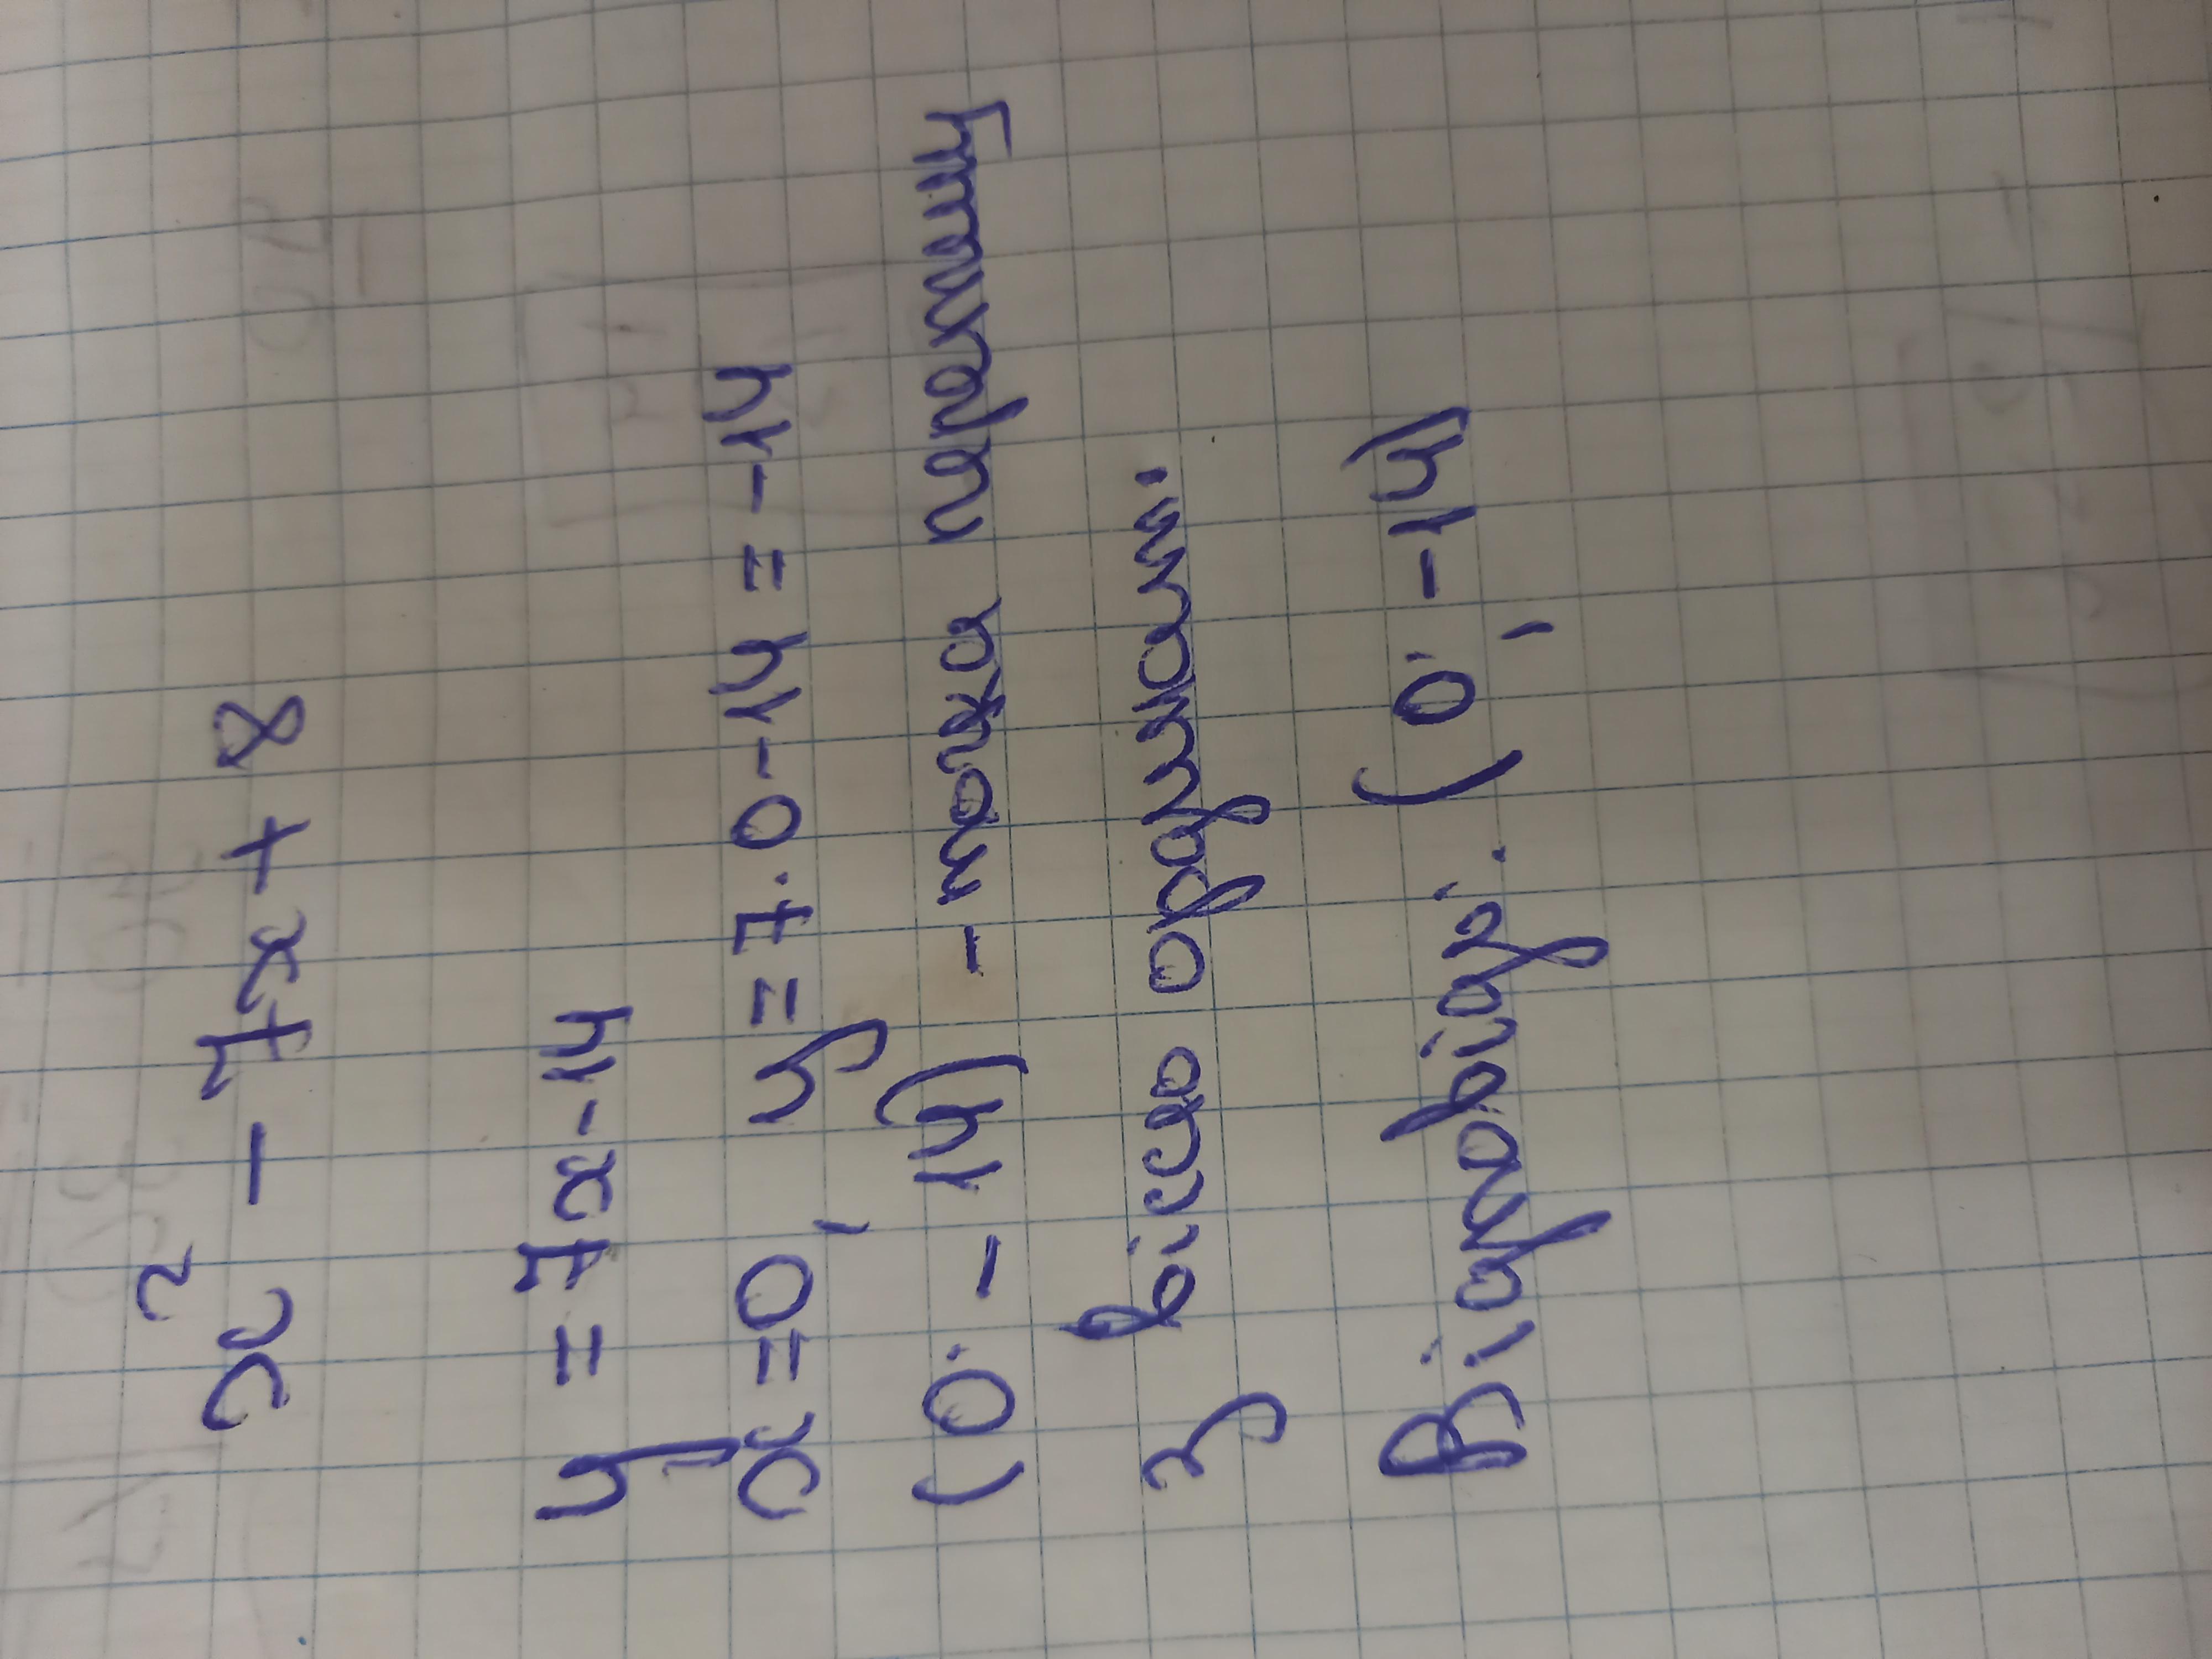 x² - 7x + 8
y = 7x - 14
x = 0, y = 7·0 - 14 = -14
(0; -14) - точка перетину
з віссю ординат.
Відповідь: (0; -14)